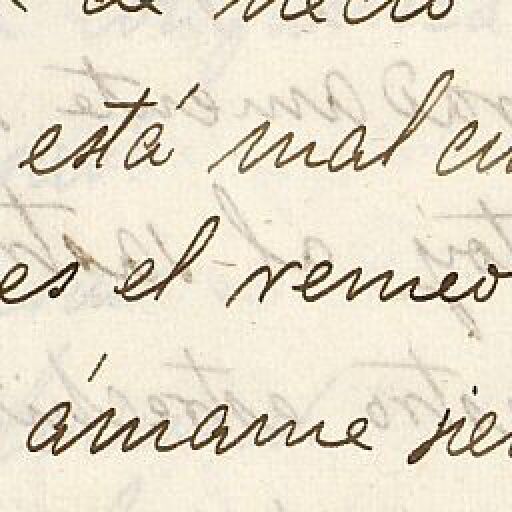 de necio
está mal cu
es el remeo
ámame sie